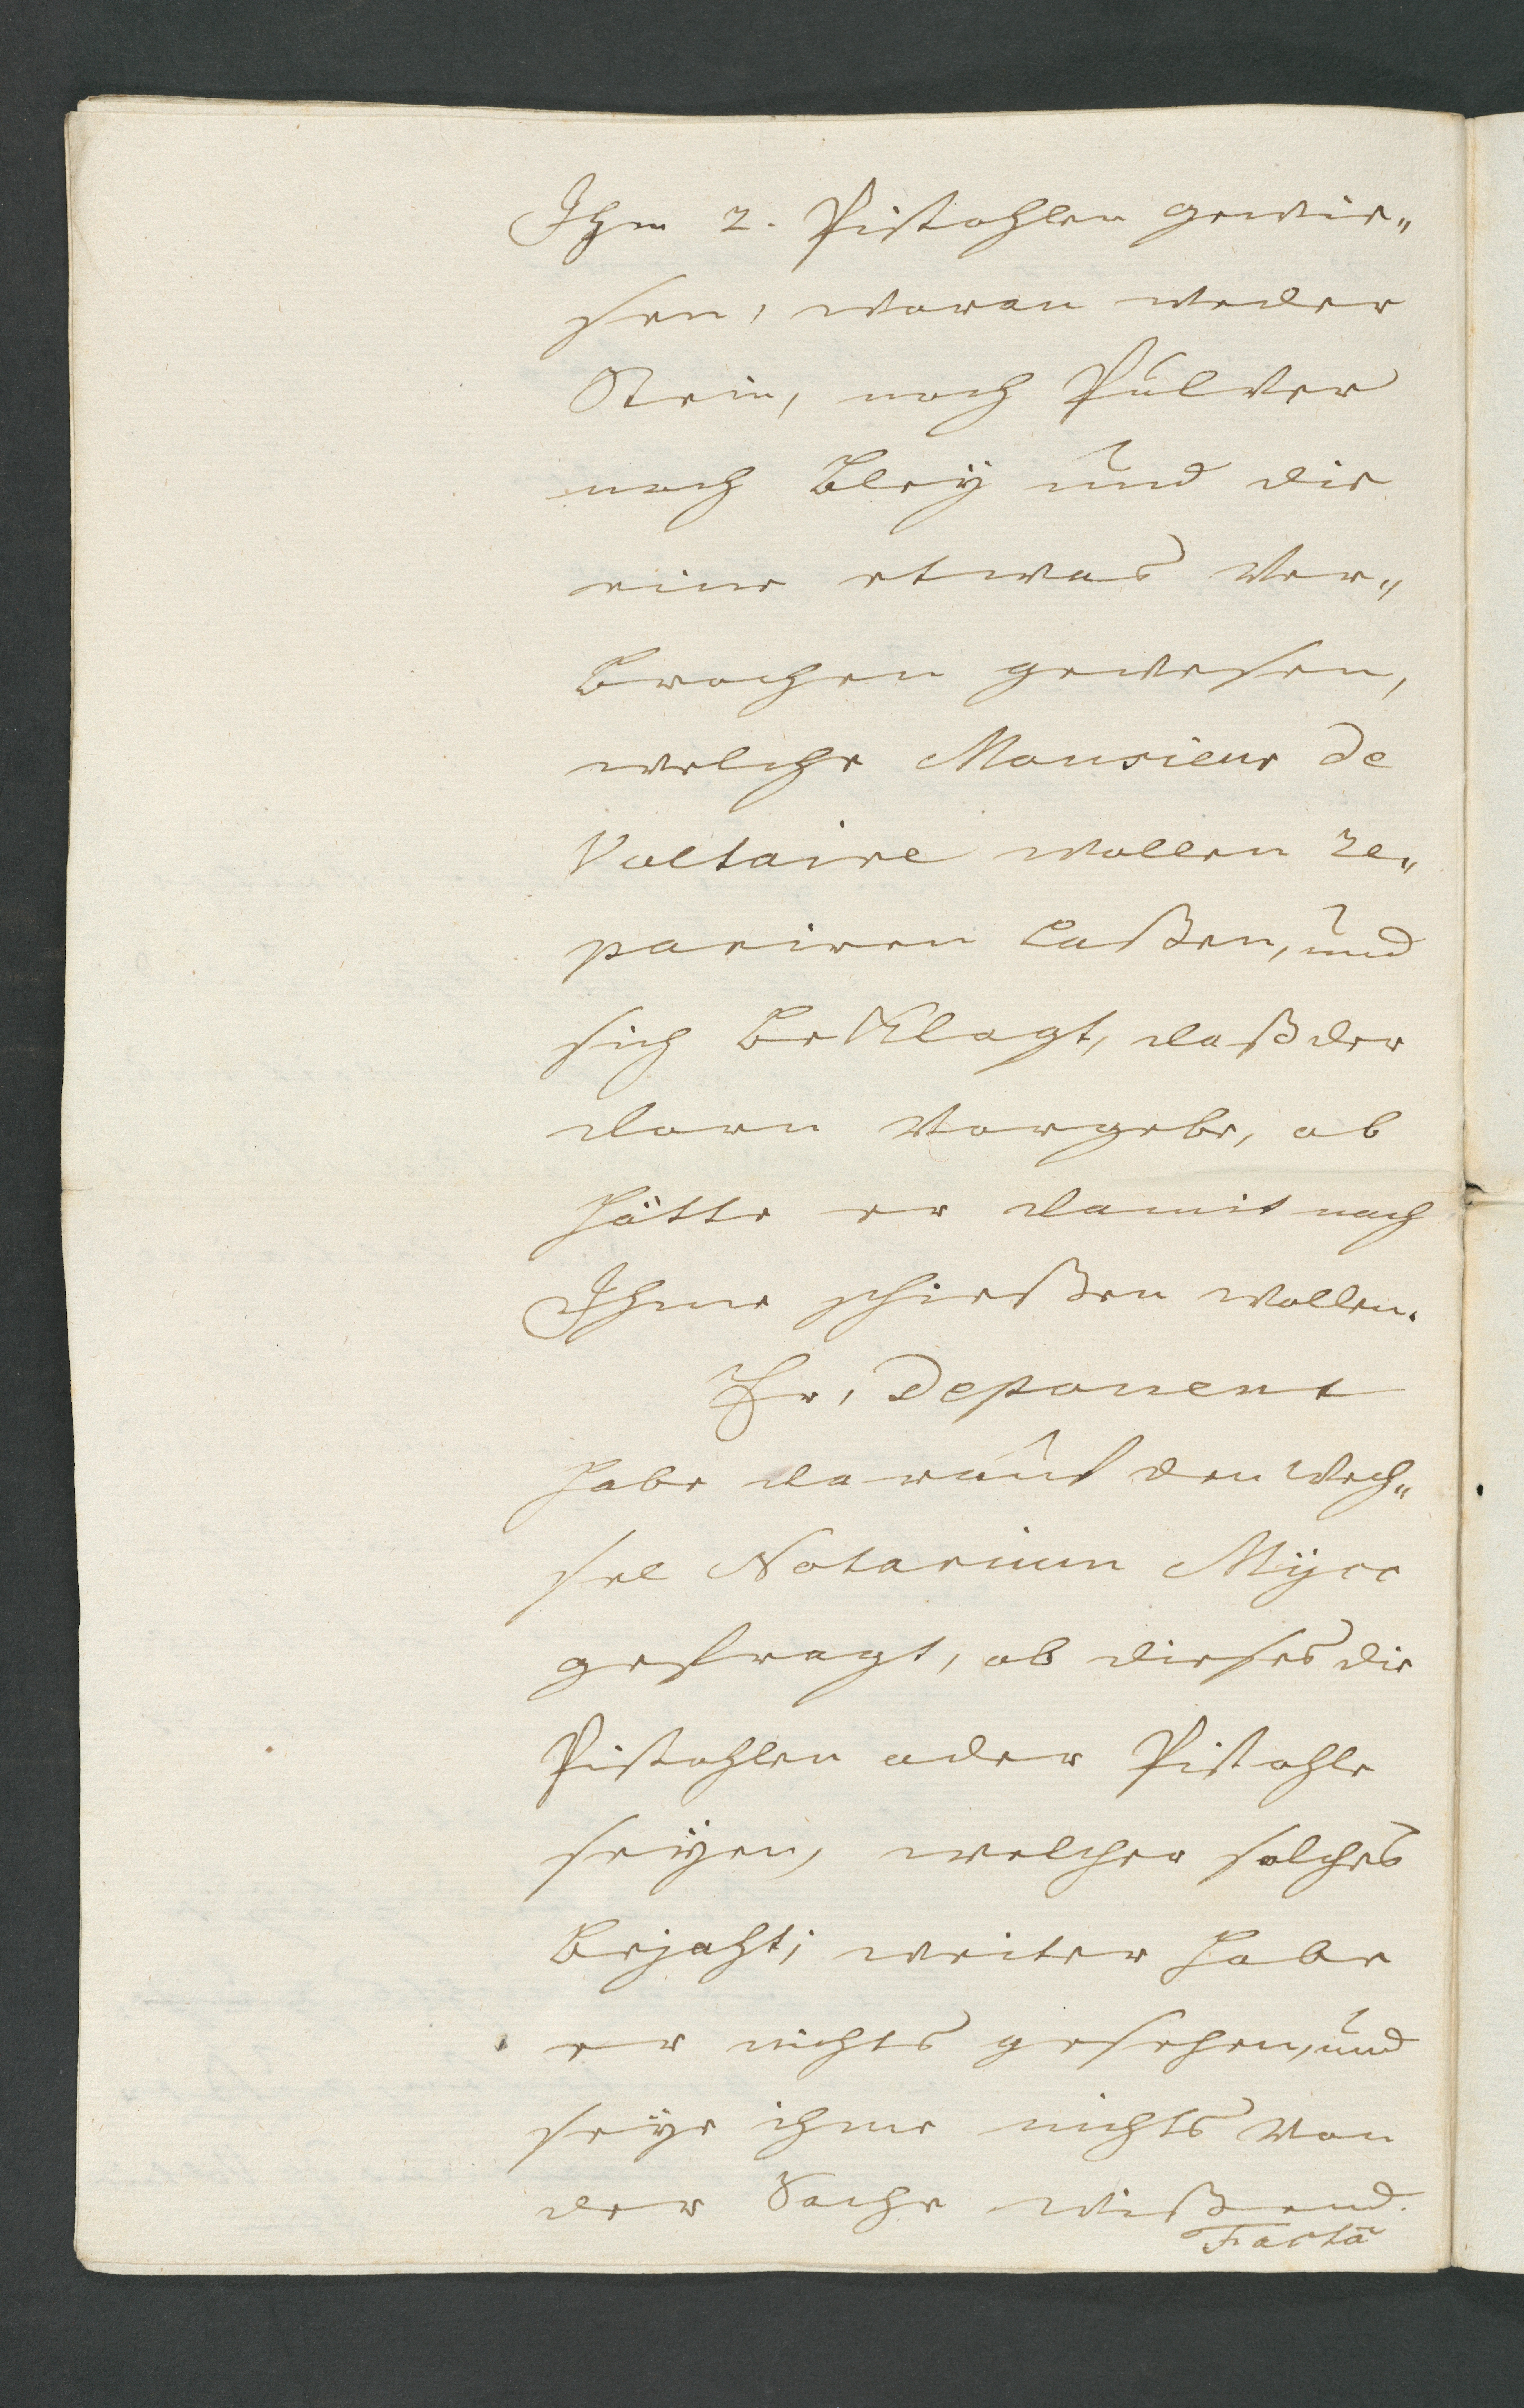 Ihm 2. Pistohlen gewie„
sen, woran weder
Stein, noch Pulver
noch Bleÿ und die
eine etwas Ver„
brochen gewesen,
welche Monsieur de
Voltaire wollen re„
pariren laßen, und
sich beklagt, daß der
dorn vorgebe, ob
hätte er damit nach
Ihme schießen wollen.
Er, Deponent
habe darauf den Wech„
sel Notarium Mÿcc
gefragt, ob dieses die
Pistohlen oder Pistohle
seÿen, welcher solches
bejaht; weiter habe
er nichts gesehen, und
seÿe ihme nichts von
der Sache wißend.
Facta